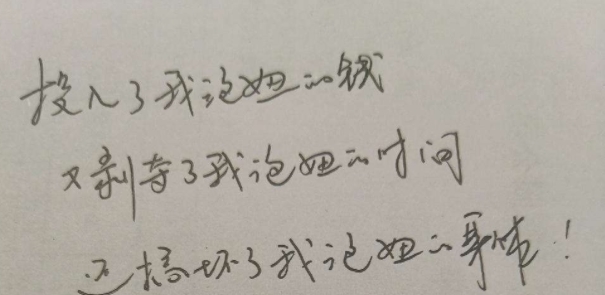 投入了我泡妞的钱
又剥夺了我泡妞的时间
还搞坏了我泡妞的身体！